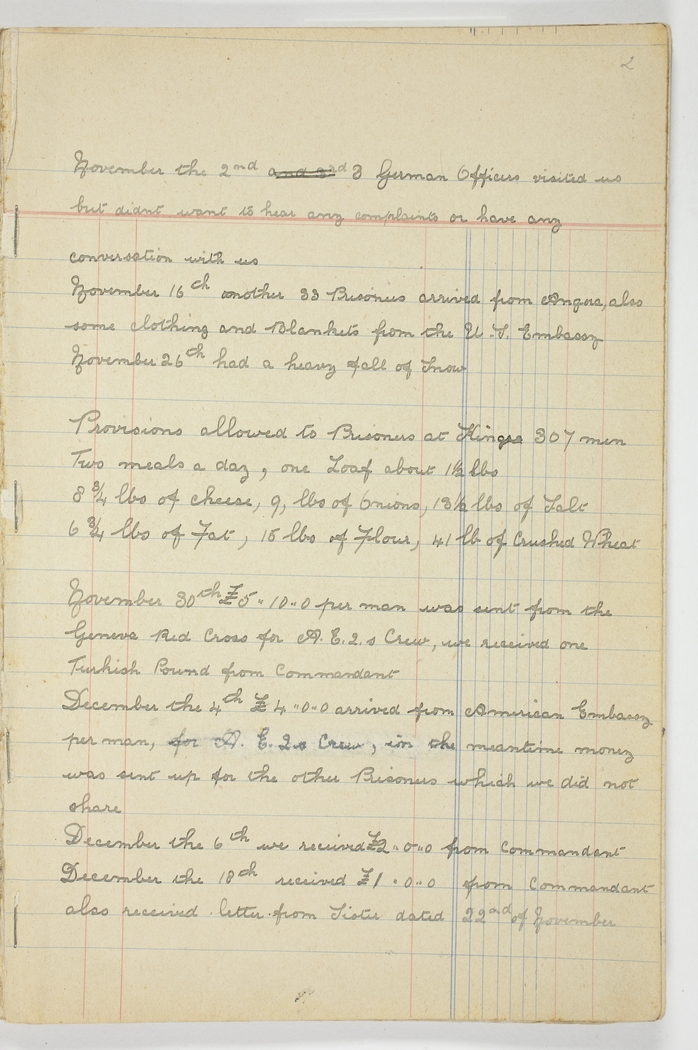 2
November the 2nd and 3rd 3 German Officers visited us
but didnt want to hear any complaints or have any
conversation with us
November 16th another 33 Prisoners arrived from Angora, also
some clothing and Blankets from the U.S. Embassy
November 26th had a heavy fall of Snow
Provisions allowed to Prisoners at 307 men
Two meals a day, one Loaf about 1½ lbs
8 ¾ lbs of cheese, 9, lbs of Onions, 13½ lbs of Salt
6 ¾ lbs of Fat, 15 lbs of Flour, 41 lb of Crushed Wheat
November 30th £5"10"0 per man was sent from the
Geneva Red Cross for A.E.2.s Crew, we received one
Turkish Pound from Commandant
December the 4th £4"0"0 arrived from American Embassy
per man, for A.E.2.s Crew, in the meantime money
was sent up for the other Prisoners which we did not
share
December the 6th we received £2"0"0 from Commandant
December the 18th received £1"0"0 from Commandant
also received letter from Sister dated 22nd of November